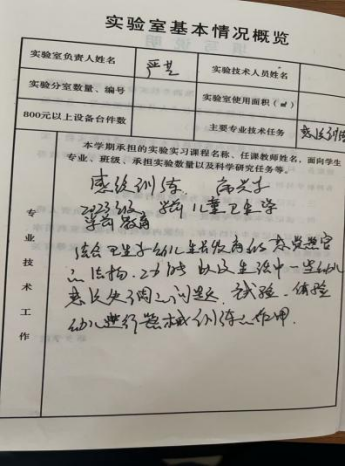 实验室基本情况概览
实验室负责人姓名 严芝 实验技术人员姓名
实验分室数量、编号 实验室使用面积(㎡)
800元以上设备台件数 主要专业技术任务 感统训练
本学期承担的实验实习课程名称、任课教师姓名,面向学生
专业、班级、承担实验数量以及科学研究任务等。
感统训练
2023级 学前儿童卫生学
学前教育
结合卫生学幼儿生长发育的感觉器官
的结构、功能以及生活中一些幼儿
感统失调的问题、试验、体验
幼儿进行器械训练的作用.
专业技术工作